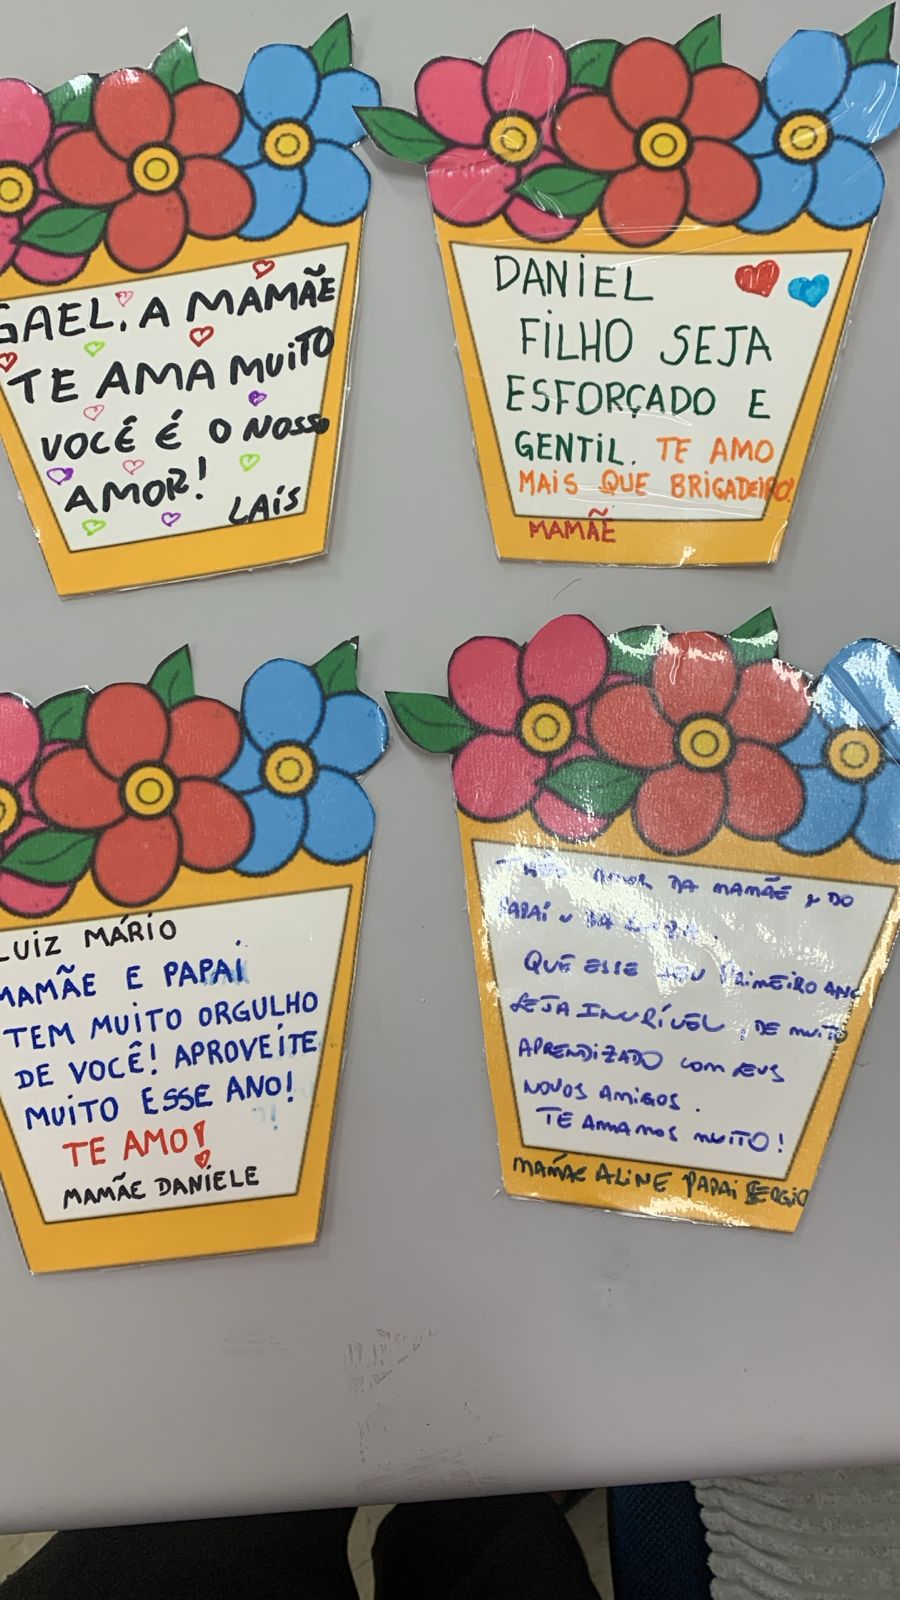 GAEL, A MAMÃE
TE AMA MUITO
VOCÊ É O NOSSO
AMOR!
LAÍS
DANIEL
FILHO SEJA
ESFORÇADO E
GENTIL. TE AMO
MAIS QUE BRIGADEIRO!
MAMÃE
LUIZ MÁRIO
MAMÃE E PAPAI
TEM MUITO ORGULHO
DE VOCÊ! APROVEITE
MUITO ESSE ANO!
TE AMO!
MAMÃE DANIELE
AMOR DA MAMÃE, DO
PAPAI
QUE ESSE SEU PRIMEIRO ANO
SEJA INCRÍVEL, DE MUITO
APRENDIZADO COM SEUS
NOVOS AMIGOS.
TE AMAMOS MUITO!
MAMÃE ALINE PAPAI SERGIO